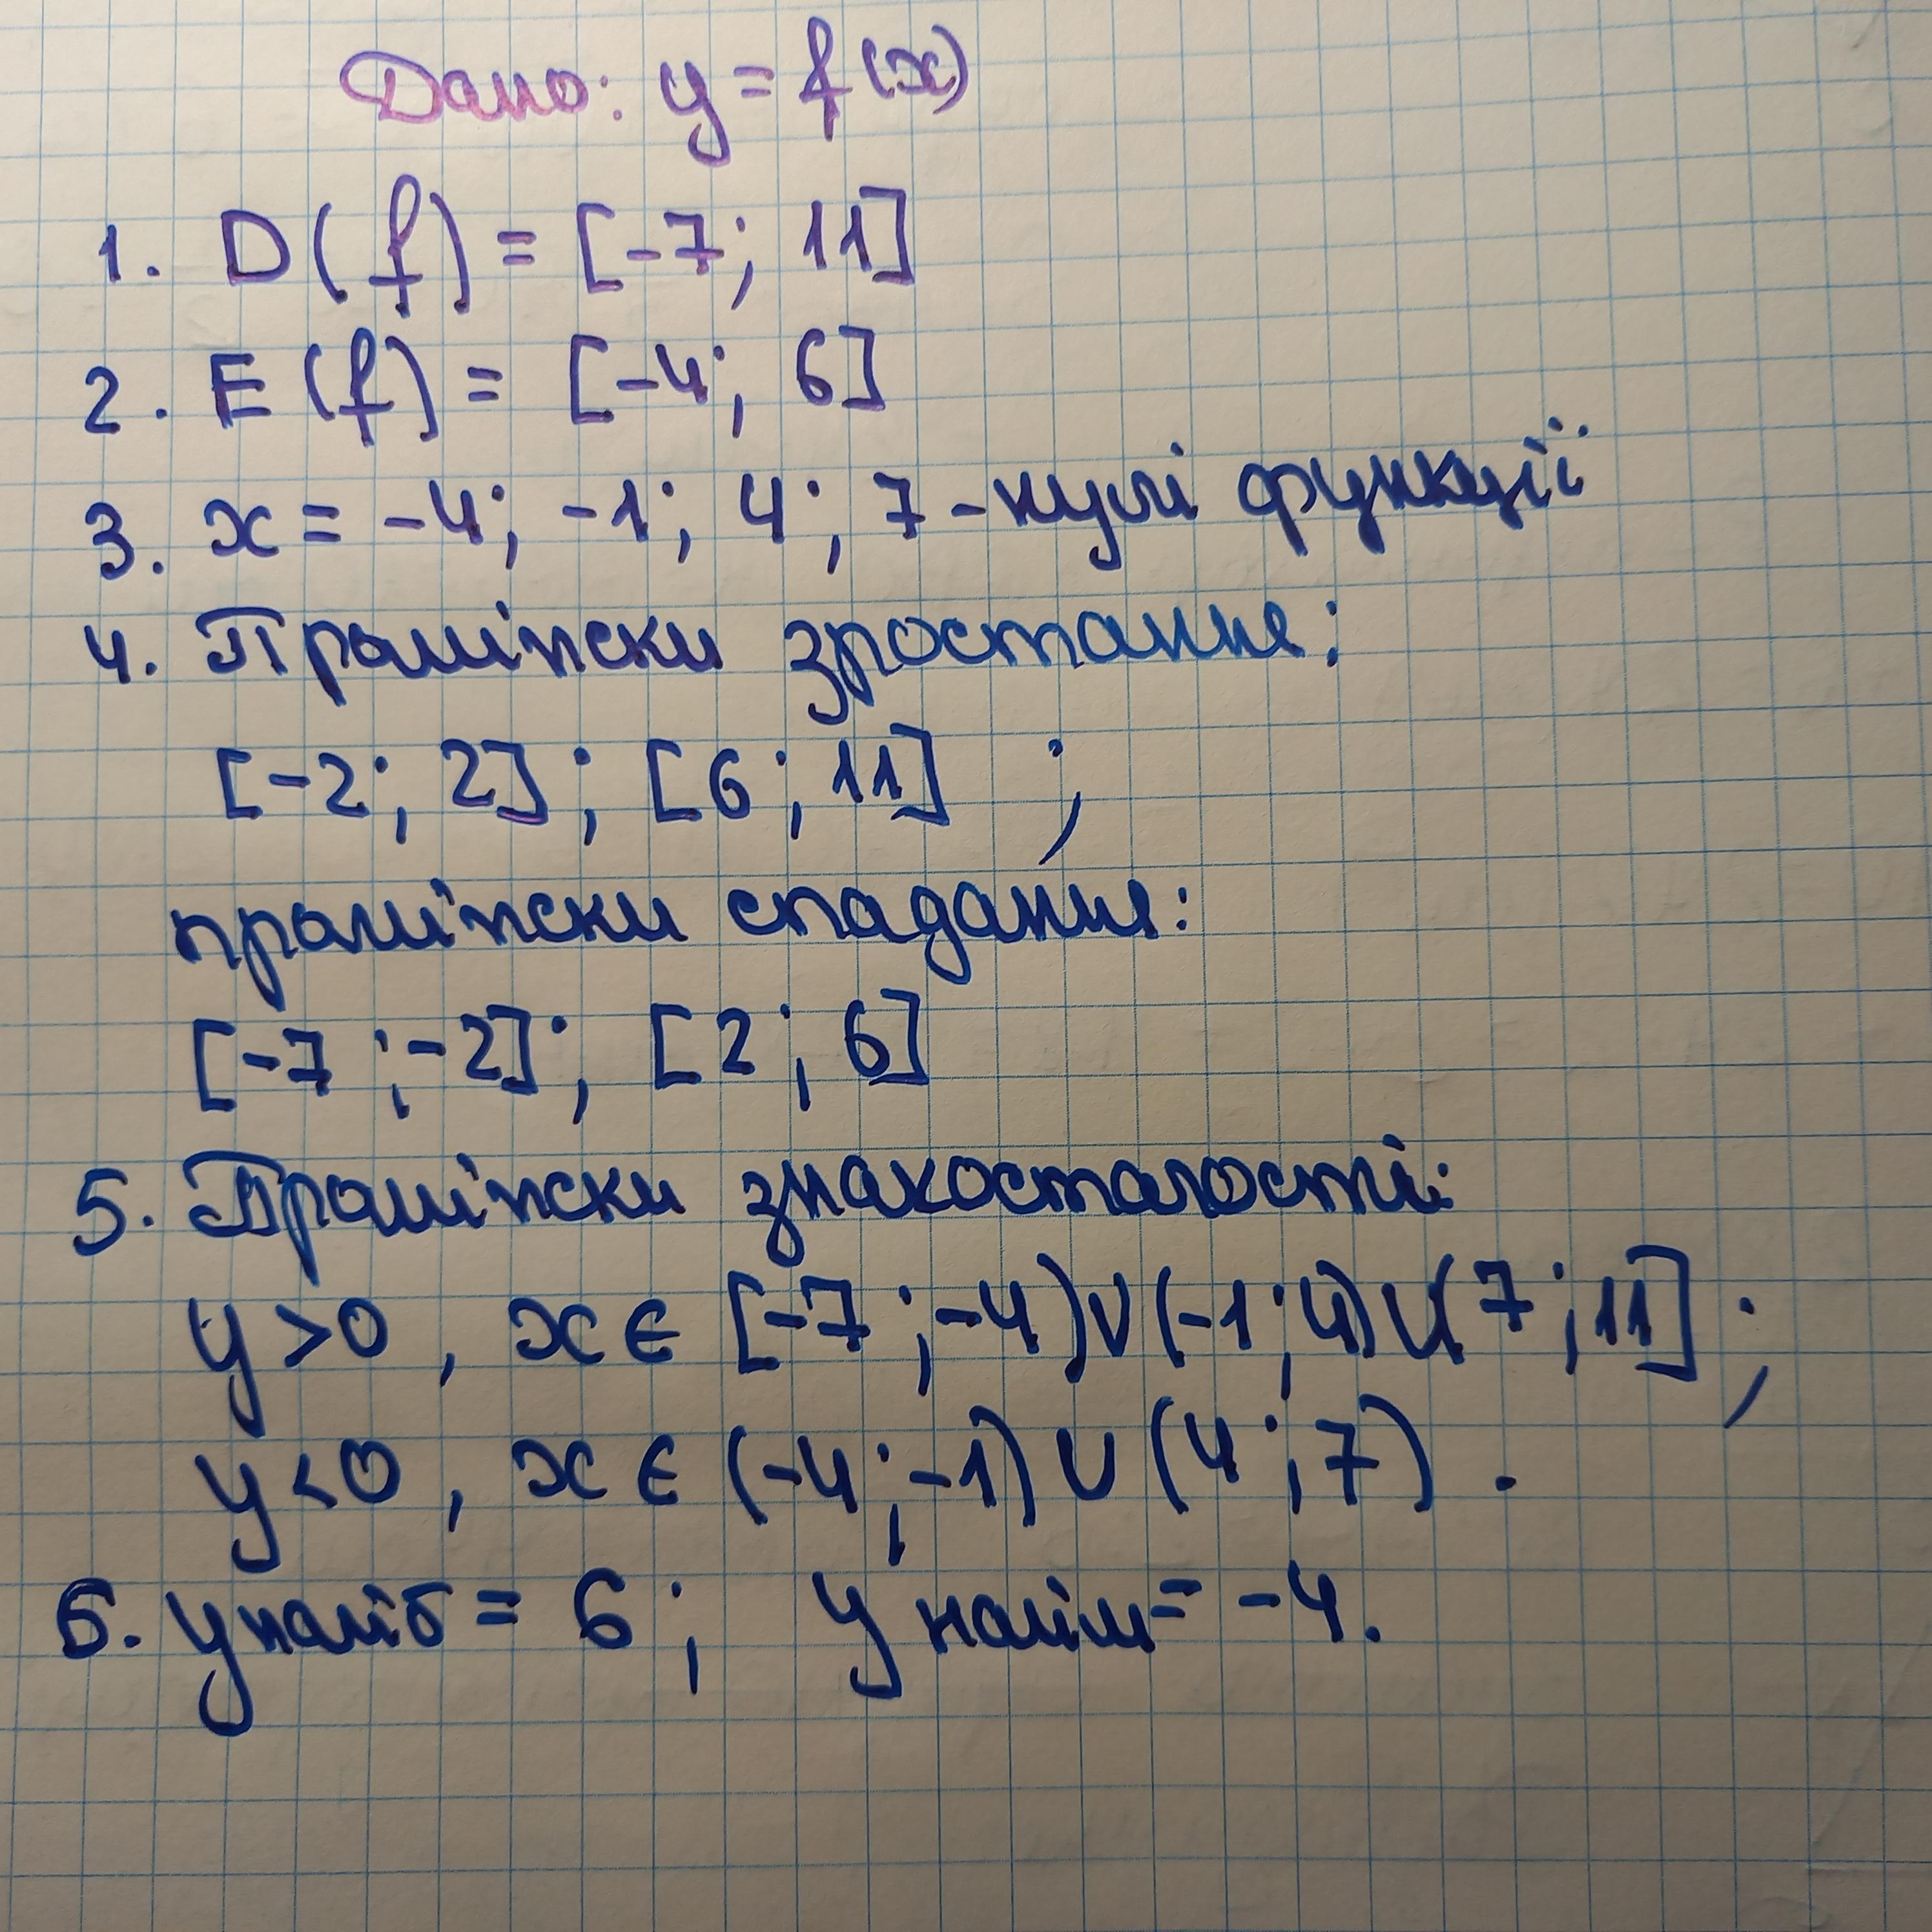 Дано: y = f(x)
1. D(f) = [-7; 11]
2. E(f) = [-4; 6]
3. x = -4; -1; 4; 7 - нулі функції
4. Проміжки зростання:
[-2; 2]; [6; 11] ;
проміжки спадання:
[-7; -2]; [2; 6]
5. Проміжки знакосталості:
y > 0, x ∈ [-7; -4) ∪ (-1; 4) ∪ (7; 11];
y < 0, x ∈ (-4; -1) ∪ (4; 7).
6. y найб = 6; y найм = -4.